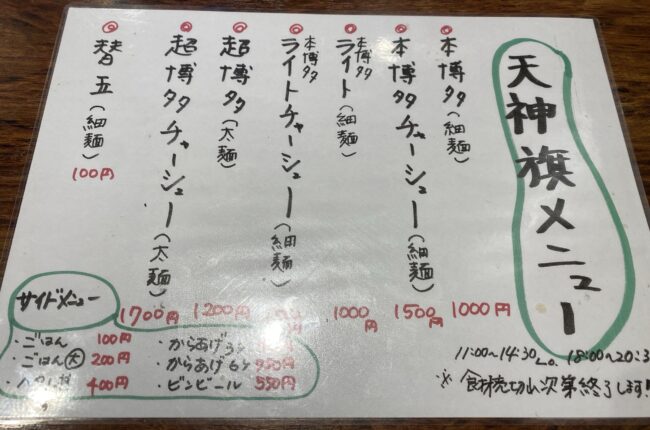 天神旗メニュー
本博多(細麺) 1000円
本博多チャーシュー(細麺) 1500円
本博多ライト(細麺) 1000円
本博多ライトチャーシュー(細麺)
超博多(太麺) 1200円
超博多チャーシュー(太麺) 1700円
替玉(細麺) 100円
11:00~14:30 L.o. 18:00~20:3
※ 次第終了します!
サイドメニュー
・ごはん 100円
・ごはん(大) 200円
400円
・からあげ3ヶ
からあげ6ヶ
・ビンビール 550円